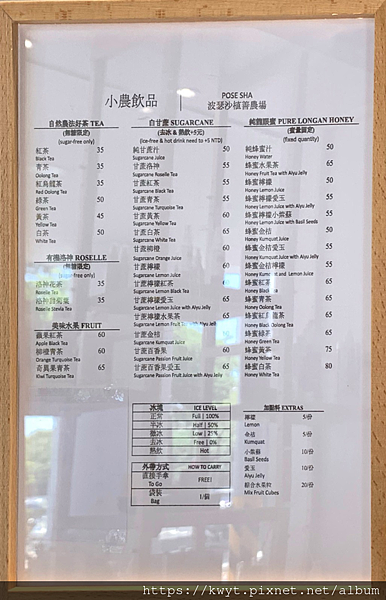 小農飲品
POSE SHA
波瑟沙植善農場
自然農法好茶 TEA
(無糖限定)
(sugar-free only)
紅茶 35
Black Tea
青茶 35
Oolong Tea
紅烏龍茶 35
Red Oolong Tea
綠茶 50
Green Tea
黃茶 45
Yellow Tea
白茶 50
White Tea
有機洛神 ROSELLE
(無糖限定)
(sugar-free only)
洛神花茶 35
Roselle Tea
洛神甜菊葉 35
Roselle Stevia Tea
美味水果 FRUIT
蘋果紅茶 60
Apple Black Tea
柳橙青茶 60
Orange Turquoise Tea
奇異果青茶 65
Kiwi Turquoise Tea
白甘蔗 SUGARCANE
(去冰&熱飲+5元)
(ice-free & hot drink need to +5 NTD)
純甘蔗汁 50
Sugarcane Juice
甘蔗洛神 55
Sugarcane Roselle Tea
甘蔗紅茶 55
Sugarcane Black Tea
甘蔗青茶 55
Sugarcane Turquoise Tea
甘蔗黃茶 60
Sugarcane Yellow Tea
甘蔗白茶 65
Sugarcane White Tea
甘蔗柳橙 60
Sugarcane Orange Juice
甘蔗檸檬
Sugarcane Lemon Juice
甘蔗檸檬紅茶
Sugarcane Lemon Black Tea
甘蔗檸檬愛玉
Sugarcane Lemon Juice with Aiyu Jelly
甘蔗檸檬水果茶 65
Sugarcane Lemon Fruit Tea with Aiyu Jelly
甘蔗金桔
Sugarcane Kumquat Juice
甘蔗百香果 60
Sugarcane Passion Fruit Juice
甘蔗百香果愛玉 65
Sugarcane Passion Fruit Juice with Aiyu Jelly
純龍眼蜜 PURE LONGAN HONEY
(蜜量固定)
(fixed quantity)
純蜂蜜汁 50
Honey Water
蜂蜜水果茶 65
Honey Fruit Tea with Aiyu Jelly
蜂蜜檸檬 50
Honey Lemon Juice
蜂蜜檸檬愛玉 55
Honey Lemon Juice with Aiyu Jelly
蜂蜜檸檬小紫蘇 55
Honey Lemon Juice with Basil Seeds
蜂蜜金桔 50
Honey Kumquat Juice
蜂蜜金桔愛玉 55
Honey Kumquat Juice with Aiyu Jelly
蜂蜜金桔檸檬 55
Honey Kumquat and Lemon Juice
蜂蜜紅茶 65
Honey Black Tea
蜂蜜青茶 65
Honey Oolong Tea
蜂蜜紅烏龍茶 65
Honey Black Oolong Tea
蜂蜜綠茶 65
Honey Green Tea
蜂蜜黃茶 75
Honey Yellow Tea
蜂蜜白茶 80
Honey White Tea
冰塊 ICE LEVEL
正常 Full | 100%
半冰 Half | 50%
微冰 Low | 25%
去冰 Free | 0%
熱飲 Hot
外帶方式 HOW TO CARRY
直接手拿 FREE!
To Go
袋裝 1/個
Bag
加點料 EXTRAS
檸檬 5/份
Lemon
金桔 5/份
Kumquat
小紫蘇 10/份
Basil Seeds
愛玉 10/份
Aiyu Jelly
綜合水果粒 20/份
Mix Fruit Cubes
https://kwyt.pixnet.net/album